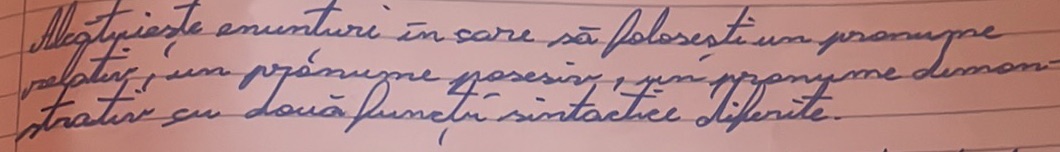 Alcătuiește enunturi în care să folosești un pronume
relativ, un pronume posesiv, un pronume demon-
strativ cu două funcții sintactice diferite.